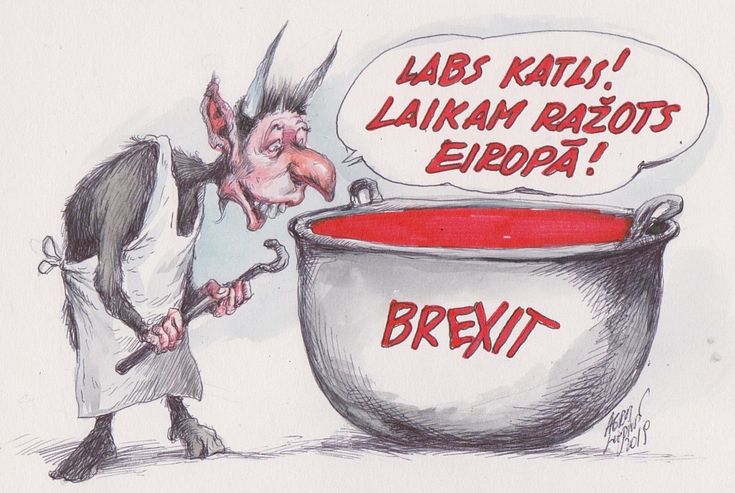 LABS KATLS!
LAIKAM RAŽOTS
EIROPĀ!
BREXIT
2019